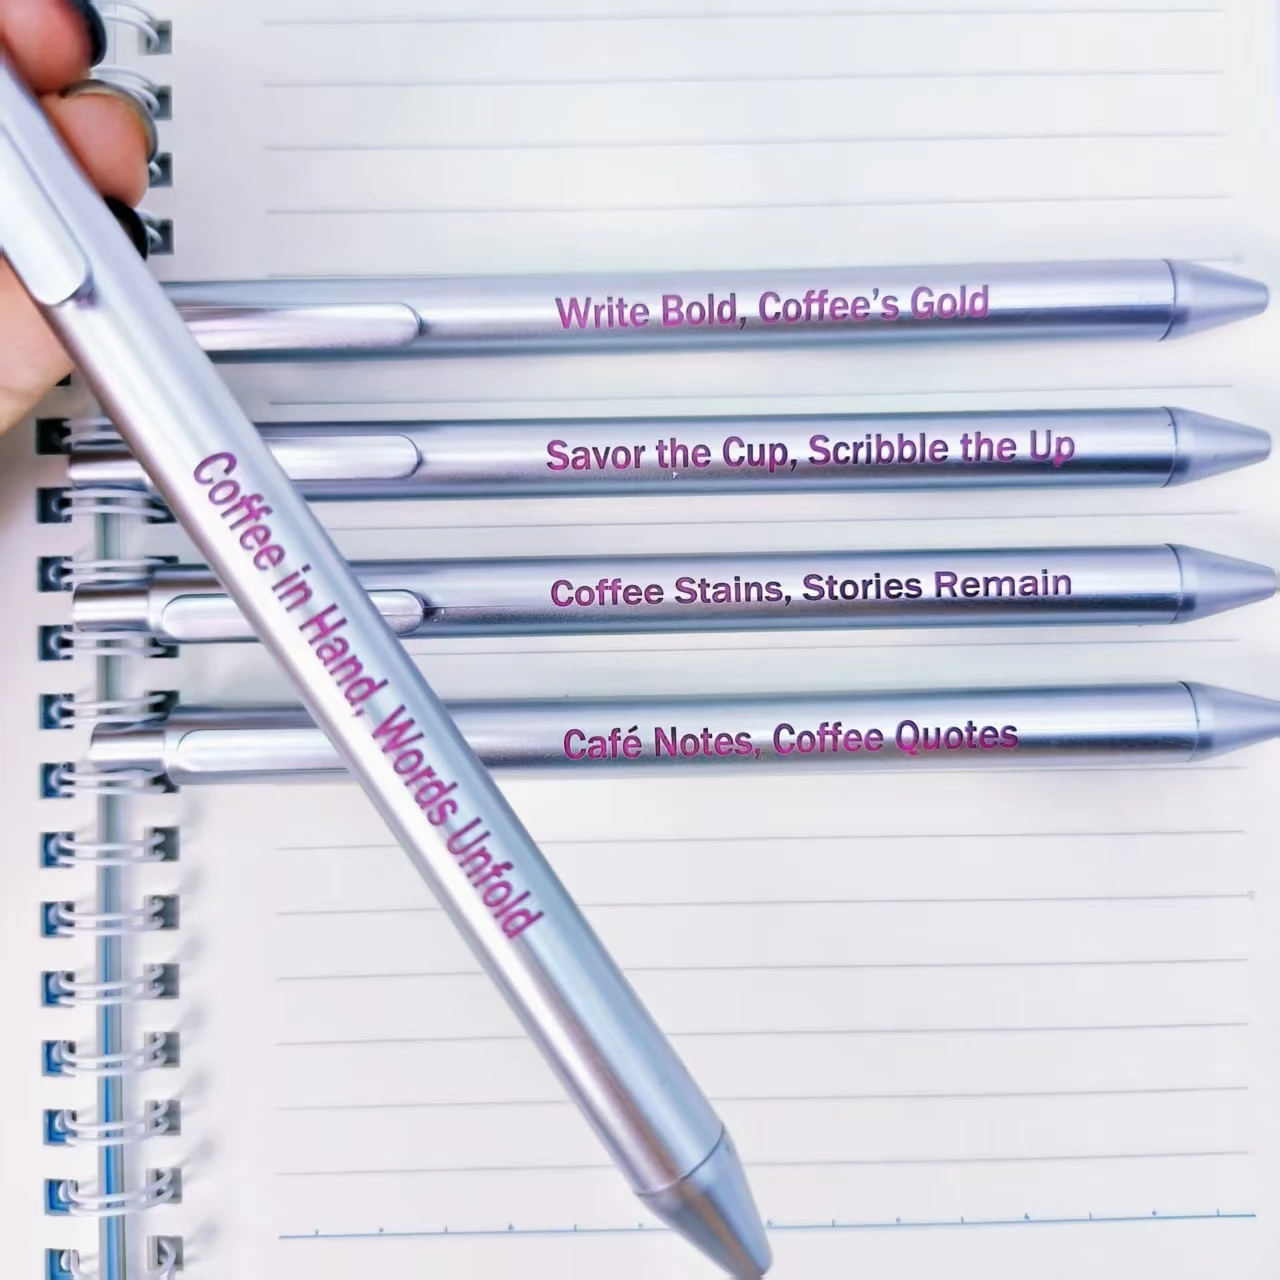 Write Bold, Coffee's Gold
Savor the Cup, Scribble the Up
Coffee Stains, Stories Remain
Café Notes, Coffee Quotes
Coffee in Hand, Words Unfold